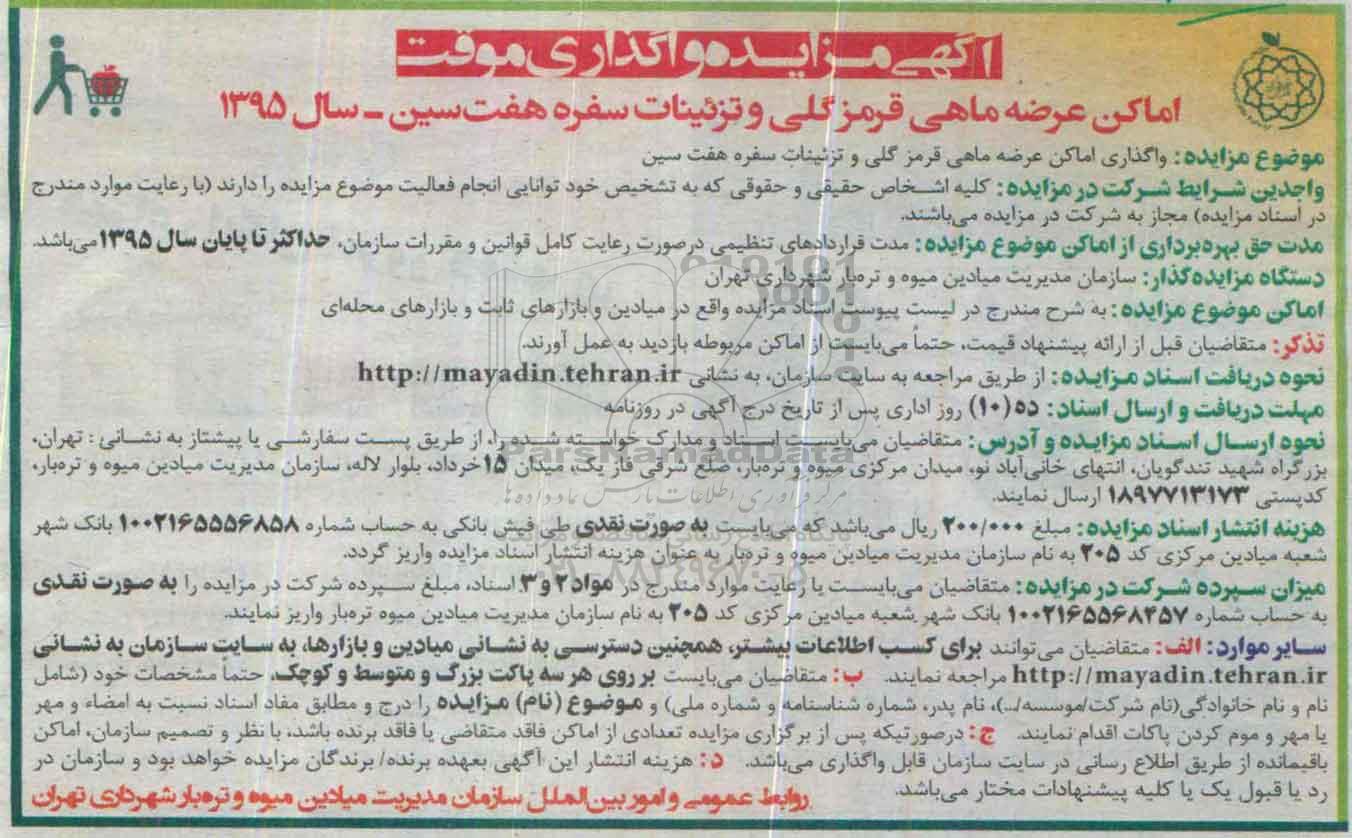 آگهی مزایده واگذاری موقت
اماکن عرضه ماهی قرمز گلی و تزئینات سفره هفت‌سین ـ سال ۱۳۹۵
موضوع مزایده: واگذاری اماکن عرضه ماهی قرمز گلی و تزئینات سفره هفت سین
واجدین شرایط شرکت در مزایده: کلیه اشخاص حقیقی و حقوقی که به تشخیص خود توانایی انجام فعالیت موضوع مزایده را دارند (با رعایت موارد مندرج
در اسناد مزایده) مجاز به شرکت در مزایده می‌باشند.
مدت حق بهره‌برداری از اماکن موضوع مزایده: مدت قراردادهای تنظیمی درصورت رعایت کامل قوانین و مقررات سازمان، حداکثر تا پایان سال ۱۳۹۵ می‌باشد.
دستگاه مزایده‌گذار: سازمان مدیریت میادین میوه و تره‌بار شهرداری تهران
اماکن موضوع مزایده: به شرح مندرج در لیست پیوست اسناد مزایده واقع در میادین و بازارهای ثابت و بازارهای محله‌ای
تذکر: متقاضیان قبل از ارائه پیشنهاد قیمت، حتماً می‌بایست از اماکن مربوطه بازدید به عمل آورند.
نحوه دریافت اسناد مزایده: از طریق مراجعه به سایت سازمان، به نشانی http://mayadin.tehran.ir
مهلت دریافت و ارسال اسناد: ده (۱۰) روز اداری پس از تاریخ درج آگهی در روزنامه
نحوه ارسال اسناد مزایده و آدرس: متقاضیان می‌بایست اسناد و مدارک خواسته شده را، از طریق پست سفارشی یا پیشتاز به نشانی: تهران،
بزرگراه شهید تندگویان، انتهای خانی‌آباد نو، میدان مرکزی میوه و تره‌بار، ضلع شرقی فاز یک، میدان ۱۵ خرداد، بلوار لاله، سازمان مدیریت میادین میوه و تره‌بار،
کدپستی ۱۸۹۷۷۱۳۱۷۳ ارسال نمایند.
هزینه انتشار اسناد مزایده: مبلغ ۲۰۰/۰۰۰ ریال می‌باشد که می‌بایست به صورت نقدی طی فیش بانکی به حساب شماره ۱۰۰۲۱۶۵۵۵۶۸۵۸ بانک شهر
شعبه میادین مرکزی کد ۲۰۵ به نام سازمان مدیریت میادین میوه و تره‌بار به عنوان هزینه انتشار اسناد مزایده واریز گردد.
میزان سپرده شرکت در مزایده: متقاضیان می‌بایست با رعایت موارد مندرج در مواد ۲ و ۳ اسناد، مبلغ سپرده شرکت در مزایده را به صورت نقدی
به حساب شماره ۱۰۰۲۱۶۵۵۶۸۴۵۷ بانک شهر شعبه میادین مرکزی کد ۲۰۵ به نام سازمان مدیریت میادین میوه تره‌بار واریز نمایند.
سایر موارد: الف: متقاضیان می‌توانند برای کسب اطلاعات بیشتر، همچنین دسترسی به نشانی میادین و بازارها، به سایت سازمان به نشانی
http://mayadin.tehran.ir مراجعه نمایند. ب: متقاضیان می‌بایست بر روی هر سه پاکت بزرگ و متوسط و کوچک، حتماً مشخصات خود (شامل
نام و نام خانوادگی(نام شرکت/موسسه/...)، نام پدر، شماره شناسنامه و شماره ملی) و موضوع (نام) مزایده را درج و مطابق مفاد اسناد نسبت به امضاء و مهر
یا مهر و موم کردن پاکات اقدام نمایند. ج: درصورتیکه پس از برگزاری مزایده تعدادی از اماکن فاقد متقاضی یا فاقد برنده باشد، با نظر و تصمیم سازمان، اماکن
باقیمانده از طریق اطلاع رسانی در سایت سازمان قابل واگذاری می‌باشد. د: هزینه انتشار این آگهی بعهده برنده/ برندگان مزایده خواهد بود و سازمان در
رد یا قبول یک یا کلیه پیشنهادات مختار می‌باشد.
روابط عمومی و امور بین‌الملل سازمان مدیریت میادین میوه و تره‌بار شهرداری تهران
ParsNamadData
مرکز فرآوری اطلاعات پارس نماد داده‌ها